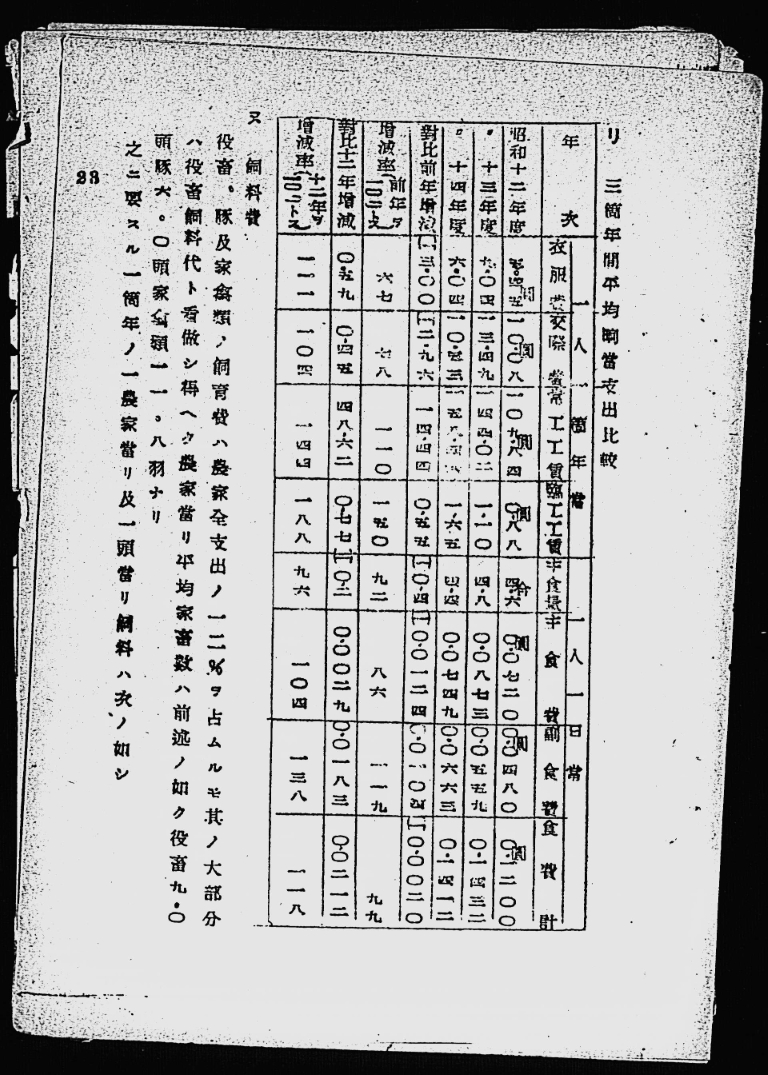 リ 三箇年間平均 當支出比較
年次 一人一箇年當 一人一日當
衣服費 交際費 常工工賃 臨工工賃 主食量 主食費 副食費 食費計
昭和十二年度 五・四五圓 一〇・〇八圓 一〇九・八四圓 〇・八八圓 四・六合 〇・〇七二〇圓 〇・〇四八〇圓 〇・一二〇〇圓
〃 十三年度 九・〇四 一三・四九 一四四・〇二 一・一〇 四・八 〇・〇八七三 〇・〇五五九 〇・一四三二
〃 十四年度 六・〇四 一〇・五三 一・六五 四・四 〇・〇七四九 〇・〇六六三 〇・一四一二
對比前年增減 [一]三・〇〇 [一]二・九六 一四・四四 〇・五五 [一]〇・四 [一]〇・〇一二四 〇・〇一〇四 [一]〇・〇〇二〇
增減率(前年ヲ一〇〇トス) 六七 七八 一一〇 一五〇 九二 八六 一一九 九九
對比十二年增減 〇・五九 〇・四五 四八・六二 〇・七七 [一]〇・二 〇・〇〇二九 〇・〇一八三 〇・〇二一二
增減率(十二年ヲ一〇〇トス) 一一一 一〇四 一四四 一八八 九六 一〇四 一三八 一一八
ヌ 飼料費
役畜、豚及家禽類ノ飼育費ハ農家全支出ノ一二%ヲ占ムルモ其ノ大部分
ハ役畜飼料代ト看做シ得ヘク農家當リ平均家畜數ハ前述ノ如ク役畜九・〇
頭豚六・〇頭家禽類一一・八羽ナリ
之ニ要スル一箇年ノ一農家當リ及一頭當リ飼料ハ次ノ如シ
23